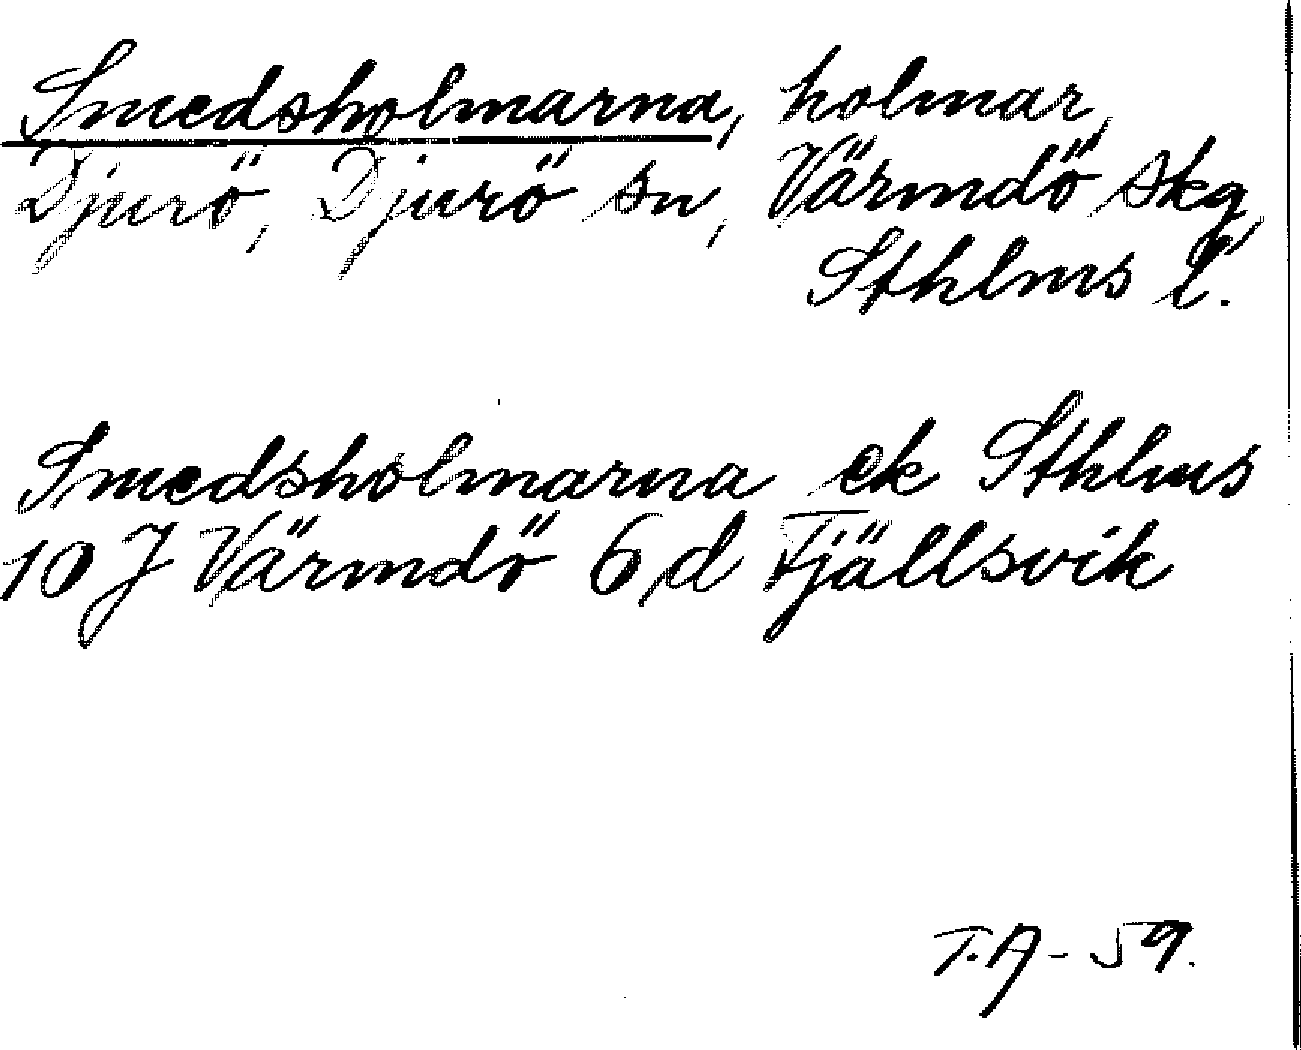 Smedsholmarna, holmar,
Djurö, Djurö sn, Värmdö skg,
Sthlms l.
Smedsholmarna ek Sthlms
10 J Värmdö 6 d Fjällsvik
T.A - 59.